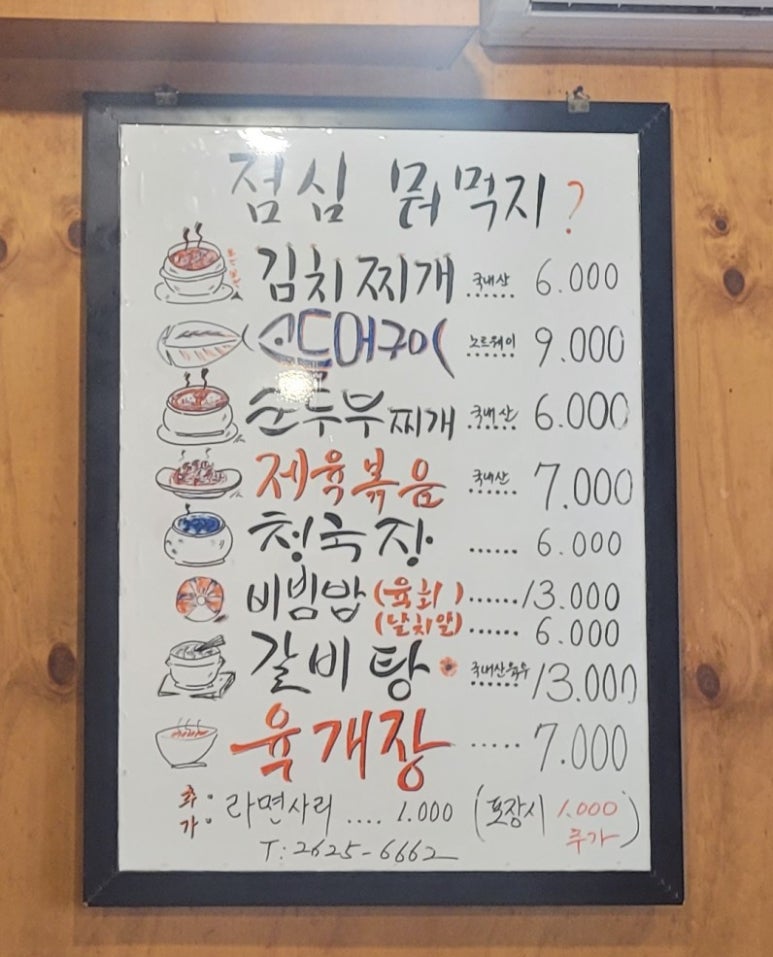 점심 뭐먹지?
김치찌개 국내산 ...... 6.000
노르웨이 ...... 9.000
순두부찌개 국내산 ...... 6.000
제육볶음 국내산 ...... 7.000
청국장 ...... 6.000
비빔밥 (육회) ...... 13.000
(날치알) ...... 6.000
갈비탕 국내산육우 ...... 13.000
육개장 ..... 7.000
추가: 라면사리 .... 1.000 (포장시 1.000 추가)
T: 2625-6662